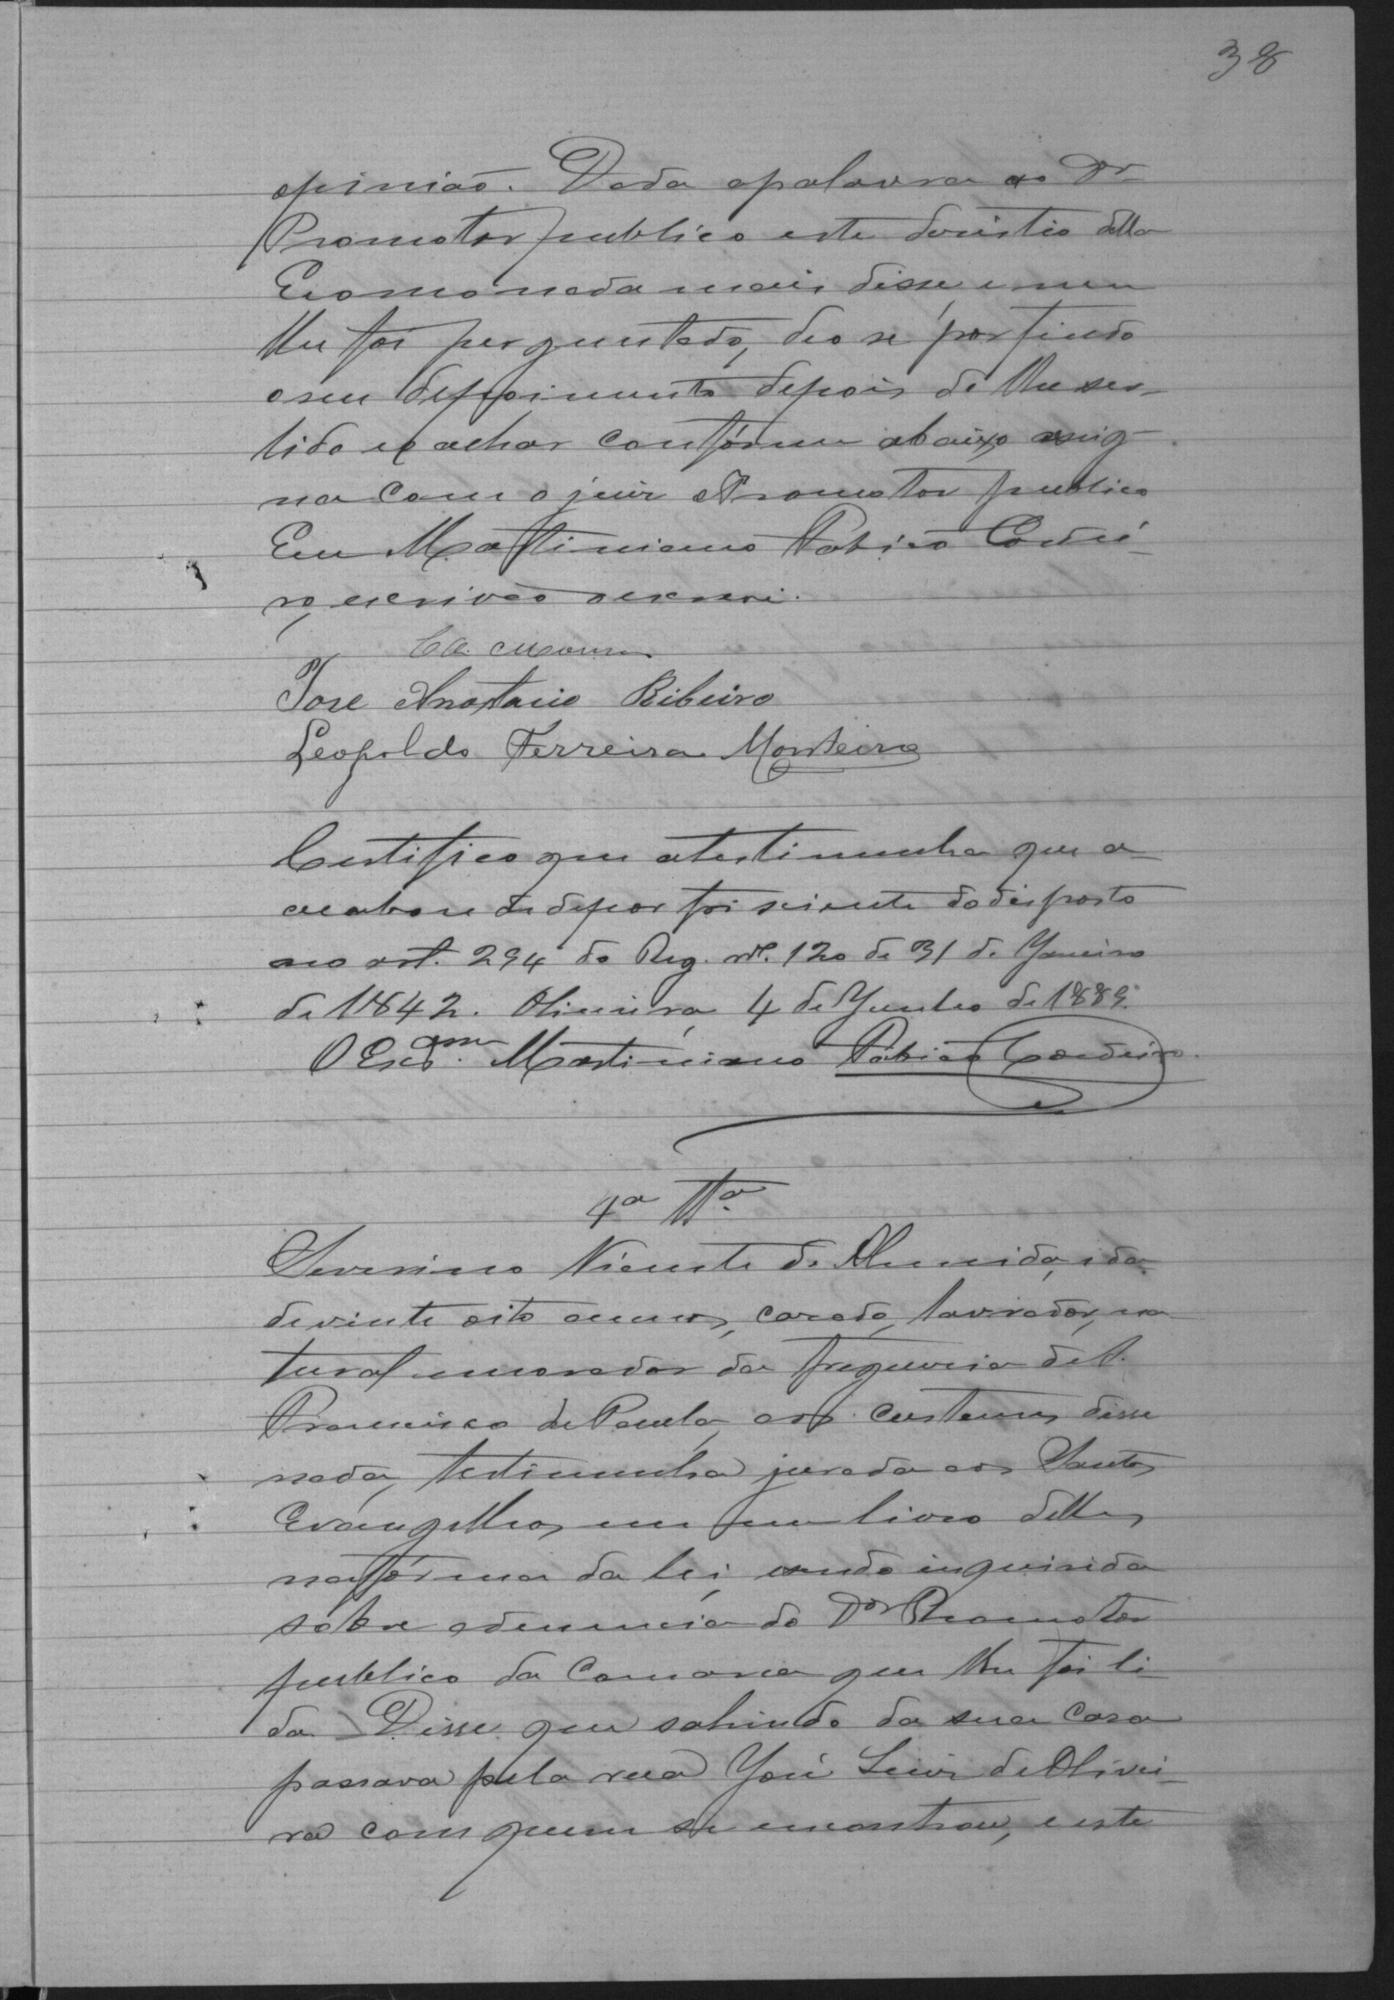 38
opinião. Dada apalavra ao Dr
Promotor publico este desistio della
E como nada mais disse e nem
lhe foi perguntado, deo se por findo
o seu depoimento depois de lhe ser
lido e o achar confórme abaixo assig-
na com o juiz e Promotor publico
Eu Martiniano Fabião Cordei-
ro, escrivão o escrevi.
José Anastacio Ribeiro
Leopoldo Ferreira Monteiro
Certifico que atestimunha que a-
acabou de depor foi sciente do disposto
no art. 294 do Reg. nº. 120 de 31 de Janeiro
de 1842. Oliveira, 4 de Junho de 1889.
O Escram. Martiniano Fabião Cordeiro.
4ª Ttª.
Severino Vicente de Almeida, ida
de vinte oito annos, casado, lavrador, na-
tural e morador da freguezia de S.
Francisco de Paula, aos custumes disse
nada, testimunha jurada aos Santos
Evangelhos em um livro delles
na fórma da lei, e sendo inquirida
sobre a denuncia do Dor Promotor
publico da Comarca que lhe foi li-
da. Disse que sahindo da sua casa
passava pela rua José Luiz de Olivei-
ra com quem se encontrou, e este